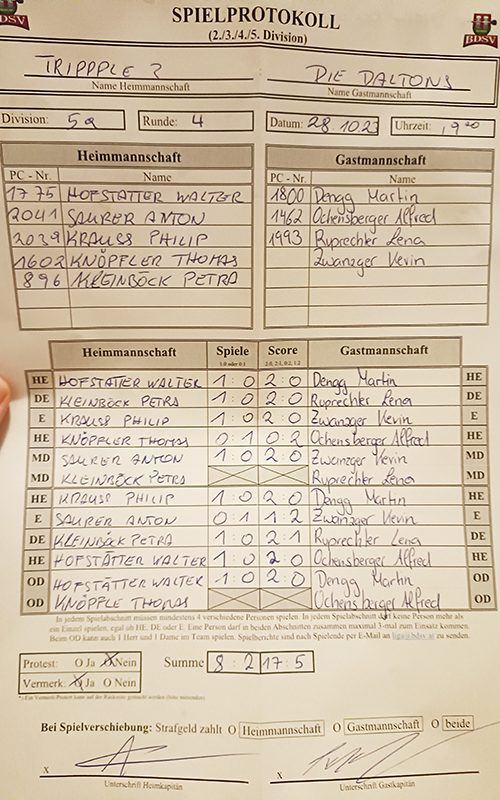 BDSV
SPIELPROTOKOLL
BDSV
(2./3./4./5. Division)
TRIPPPLE 3 DIE DALTONS
Name Heimmannschaft Name Gastmannschaft
Division: 5a Runde: 4 Datum: 28.10.23 Uhrzeit: 19 00
Heimmannschaft Gastmannschaft
PC - Nr. Name PC - Nr. Name
1775 HOFSTÄTTER WALTER 1800 Dengg Martin
2041 SAURER ANTON 1462 Ochensberger Alfred
2039 KRAUSS PHILIP 1993 Ruprechter Lena
1602 KNÖPFLER THOMAS Zwanzger Kevin
896 KLEINBÖCK PETRA
Heimmannschaft Spiele Score Gastmannschaft
1:0 oder 0:1 2:0, 2:1, 0:2, 1:2
HE HOFSTÄTTER WALTER 1:0 2:0 Dengg Martin HE
DE KLEINBÖCK PETRA 1:0 2:0 Ruprechter Lena DE
E KRAUSS PHILIP 1:0 2:0 Zwanzger Kevin E
HE KNÖPPLER THOMAS 0:1 0:2 Ochensberger Alfred HE
MD SAURER ANTON 1:0 2:0 Zwanzger Kevin MD
MD KLEINBÖCK PETRA Ruprechter Lena MD
HE KRAUSS PHILIP 1:0 2:0 Dengg Martin HE
E SAURER ANTON 0:1 1:2 Zwanzger Kevin E
DE KLEINBÖCK PETRA 1:0 2:1 Ruprechter Lena DE
HE HOFSTÄTTER WALTER 1:0 2:0 Ochensberger Alfred HE
OD HOFSTÄTTER WALTER 1:0 2:0 Dengg Martin OD
OD KNÖPPLE THOMAS Ochensberger Alfred OD
In jedem Spielabschnitt müssen mindestens 4 verschiedene Personen spielen. In jedem Spielabschnitt darf keine Person mehr als
ein Einzel spielen, egal ob HE, DE oder E. Eine Person darf in beiden Abschnitten zusammen maximal 3-mal zum Einsatz kommen.
Beim OD kann auch 1 Herr und 1 Dame im Team spielen. Spielberichte sind nach Spielende per E-Mail an liga@bdsv.at zu senden.
Protest: O Ja O Nein Summe 8:2 17:5
Vermerk: O Ja O Nein
Bei Spielverschiebung: Strafgeld zahlt O Heimmannschaft O Gastmannschaft O beide
x x
Unterschrift Heimkapitän Unterschrift Gastkapitän